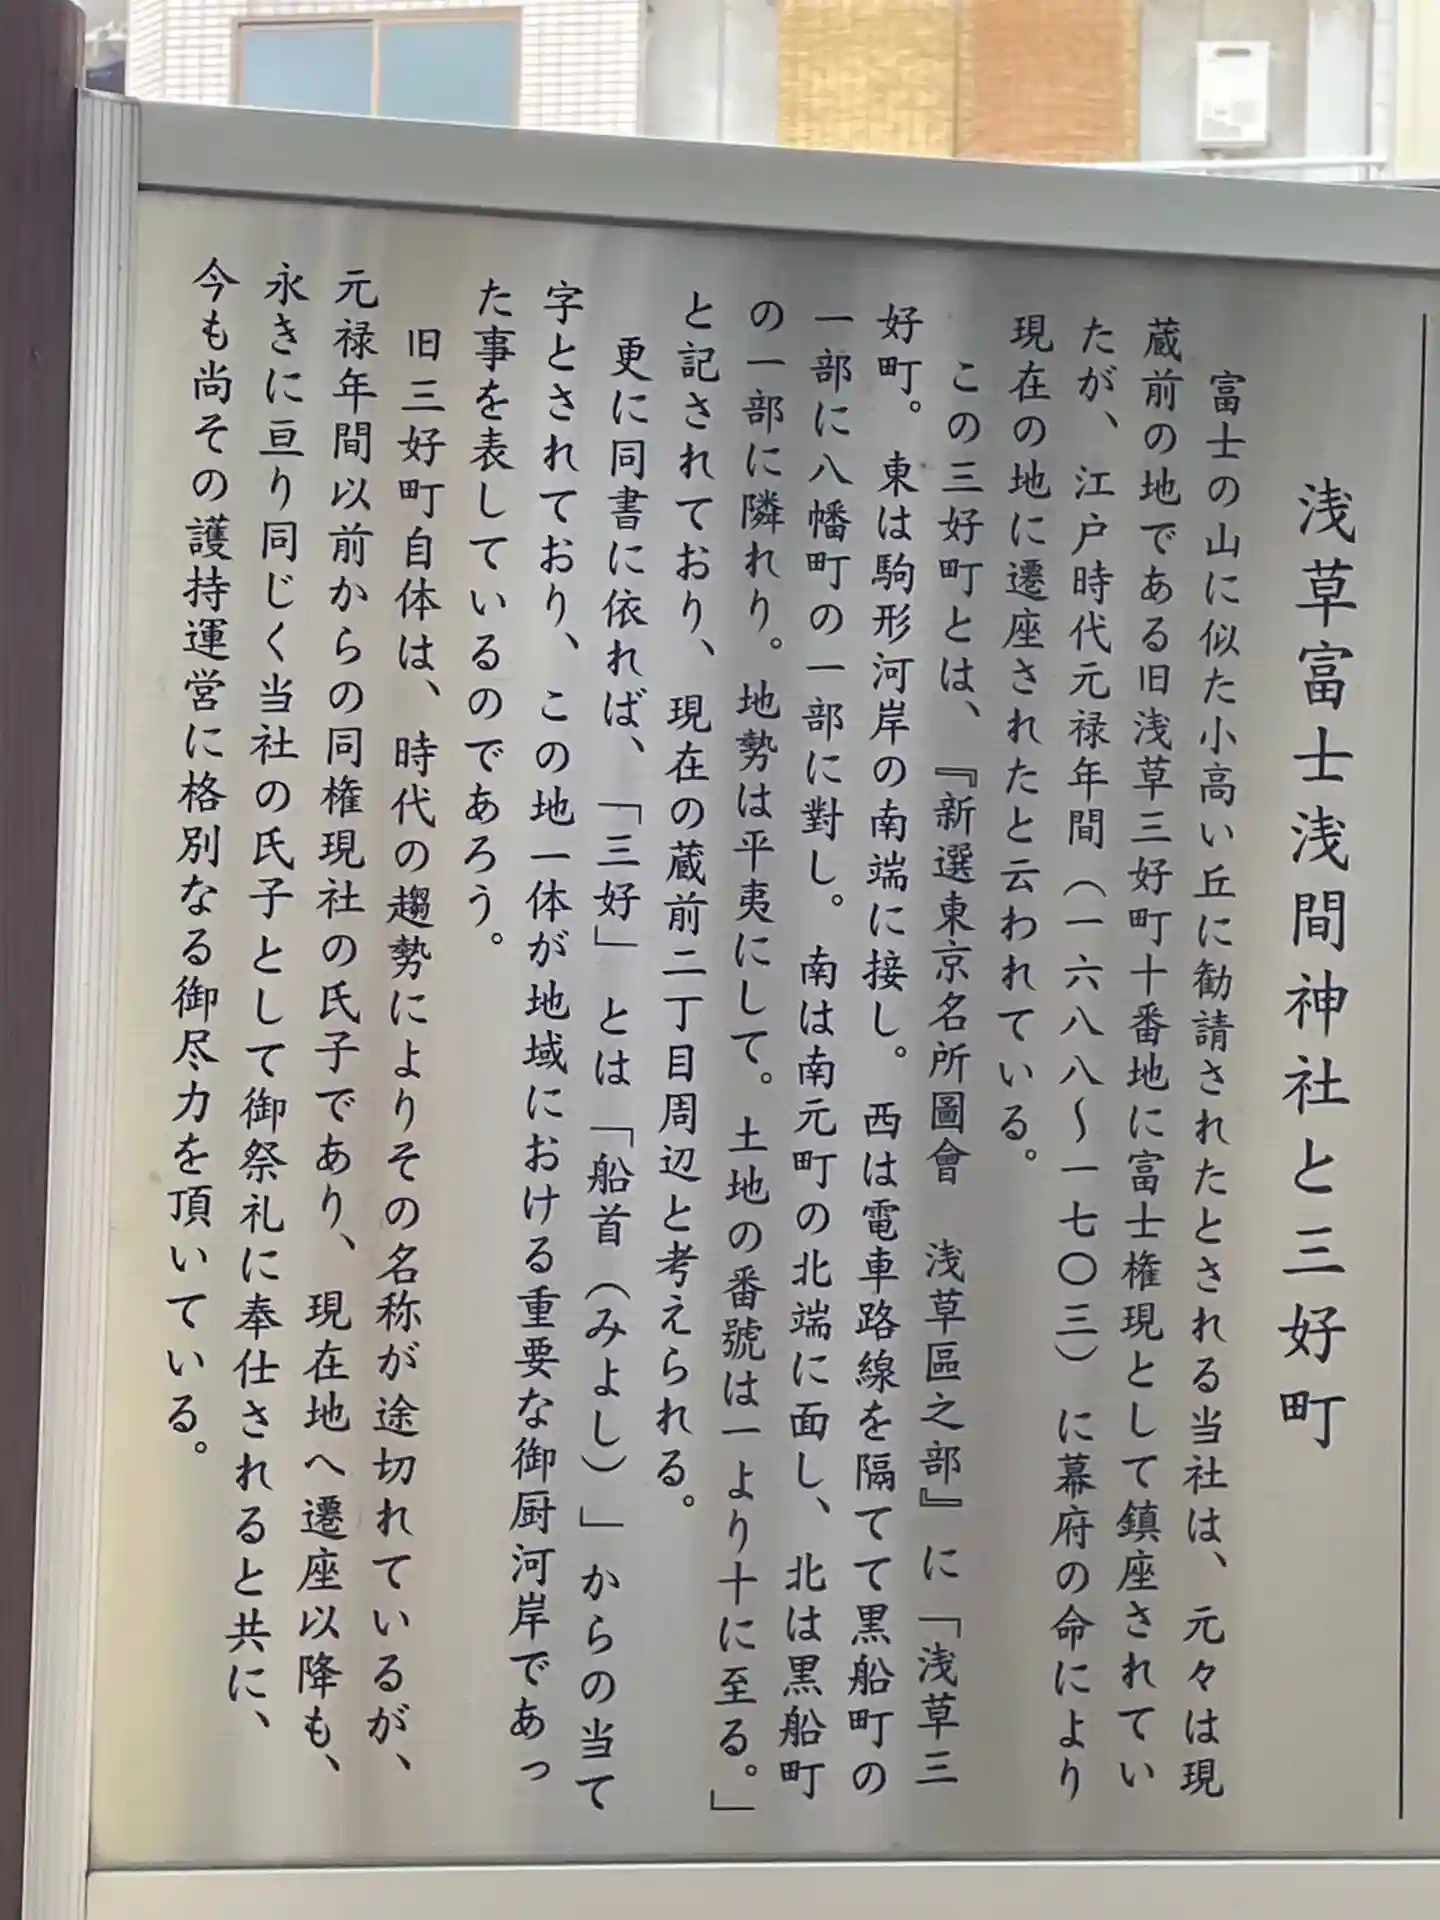 浅草富士浅間神社と三好町
富士の山に似た小高い丘に勧請されたとされる当社は、元々は現
蔵前の地である旧浅草三好町十番地に富士権現として鎮座されてい
たが、江戸時代元禄年間（一六八八〜一七〇三）に幕府の命により
現在の地に遷座されたと云われている。
この三好町とは、『新選東京名所圖會　浅草區之部』に「浅草三
好町。東は駒形河岸の南端に接し。西は電車路線を隔てて黒船町の
一部に八幡町の一部に對し。南は南元町の北端に面し、北は黒船町
の一部に隣れり。地勢は平夷にして。土地の番號は一より十に至る。」
と記されており、現在の蔵前二丁目周辺と考えられる。
更に同書に依れば、「三好」とは「船首（みよし）」からの当て
字とされており、この地一体が地域における重要な御厨河岸であっ
た事を表しているのであろう。
旧三好町自体は、時代の趨勢によりその名称が途切れているが、
元禄年間以前からの同権現社の氏子であり、現在地へ遷座以降も、
永きに亘り同じく当社の氏子として御祭礼に奉仕されると共に、
今も尚その護持運営に格別なる御尽力を頂いている。